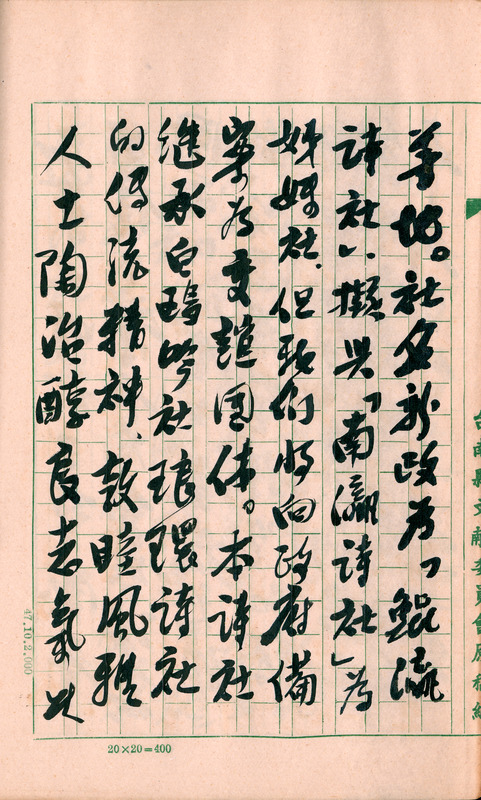 等地。社名新改為「鯤瀛
詩社」、擬與「南瀛詩社」為
姊妹社、但我們將向政府備
案為团体。本詩社
继承白鷗吟社琅環詩社
的傳流精神、敦睦風雅
人士陶冶醇良志氣以
台南縣文獻委員會原稿紙
47.10.2,000
20×20=400